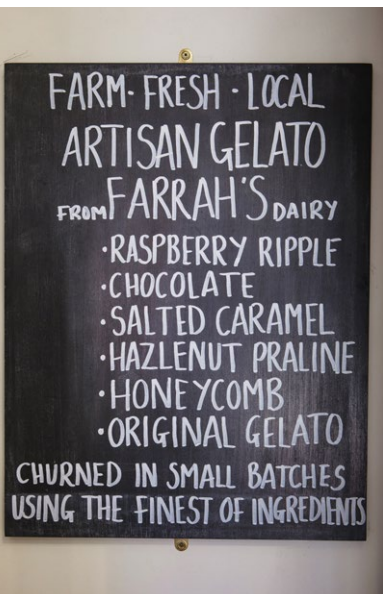 FARM · FRESH · LOCAL
ARTISAN GELATO
FROM FARRAH'S DAIRY
· RASPBERRY RIPPLE
· CHOCOLATE
· SALTED CARAMEL
· HAZLENUT PRALINE
· HONEYCOMB
· ORIGINAL GELATO
CHURNED IN SMALL BATCHES
USING THE FINEST OF INGREDIENTS